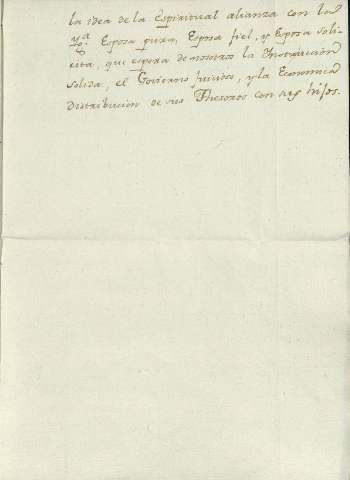 la idea de la Espiritual alianza con la
Esposa pura, Esposa fiel, y Esposa soli-
cita, que espera de nosotros la Instruccion
solida, el Govierno Juicioso, y la Economica
Distribucion de sus Thesoros con sus hijos.